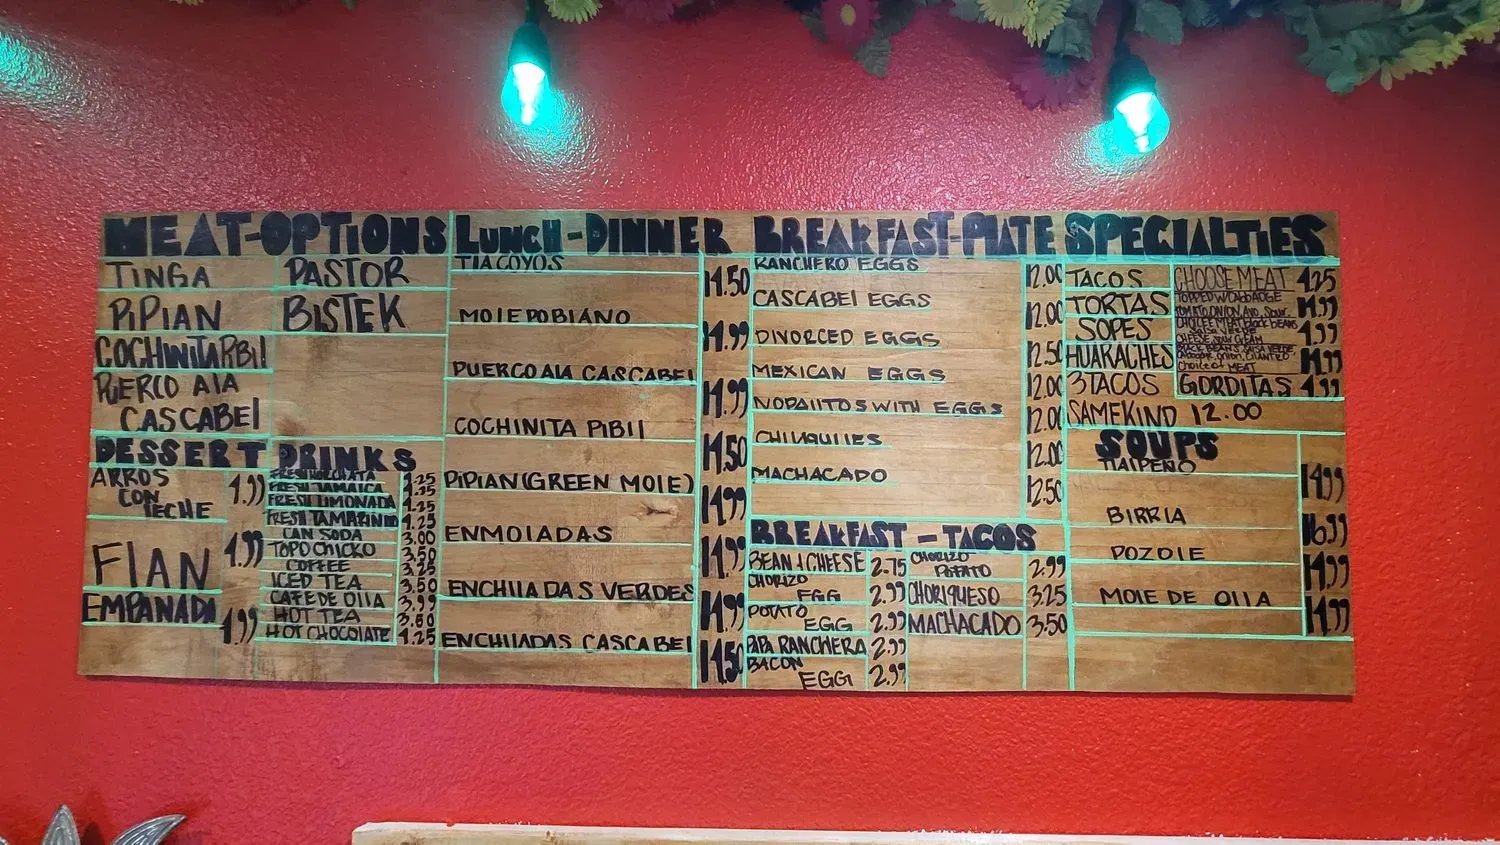 MEAT-OPTIONS
TINGA
PASTOR
PIPIAN
BISTEK
COCHINITA PIBIL
PUERCO ALA
CASCABEL
DESSERT
ARROS
CON
LECHE
4.99
FLAN
4.99
EMPANADA
4.99
DRINKS
FRESH HORCHATA 4.25
FRESH JAMAICA 4.25
FRESH LIMONADA 4.25
FRESH TAMARINDO 4.25
CAN SODA 3.00
TOPO CHICKO 3.50
COFFEE 3.25
ICED TEA 3.50
CAFE DE OLLA 3.99
HOT TEA 3.60
HOT CHOCOLATE 4.25
LUNCH-DINNER
TLACOYOS 14.50
MOLE POBLANO 14.99
PUERCO ALA CASCABEL 14.99
COCHINITA PIBIL 14.50
PIPIAN(GREEN MOLE) 14.99
ENMOLADAS 14.99
ENCHILADAS VERDES 14.99
ENCHILADAS CASCABEL 14.50
BREAKFAST-PLATE
RANCHERO EGGS 12.00
CASCABEL EGGS 12.00
DIVORCED EGGS 12.50
MEXICAN EGGS 12.00
NOPALITOS WITH EGGS 12.00
CHILAQUILES 12.00
MACHACADO 12.50
BREAKFAST-TACOS
BEAN & CHEESE 2.75
CHORIZO
EGG 2.99
POTATO
EGG 2.99
PAPA RANCHERA 2.99
BACON
EGG 2.99
CHORIZO
POTATO 2.99
CHORIQUESO 3.25
MACHACADO 3.50
SPECIALTIES
TACOS CHOOSE MEAT 4.25
TORTAS TOPPED W/CABBAGE
TOMATO ONION, AVO, SOUR. 14.99
SOPES CHOICE MEAT, Black BEANS
CHEESE, SOUR CREAM 4.99
HUARACHES BLACK BEANS, SALSA VERDE,
CABBAGE, ONION, CILANTRO
Choice of MEAT 14.99
3 TACOS
SAME KIND 12.00
GORDITAS 4.99
SOUPS
TLALPENO 14.99
BIRRIA 16.99
POZOLE 14.99
MOLE DE OLLA 14.99